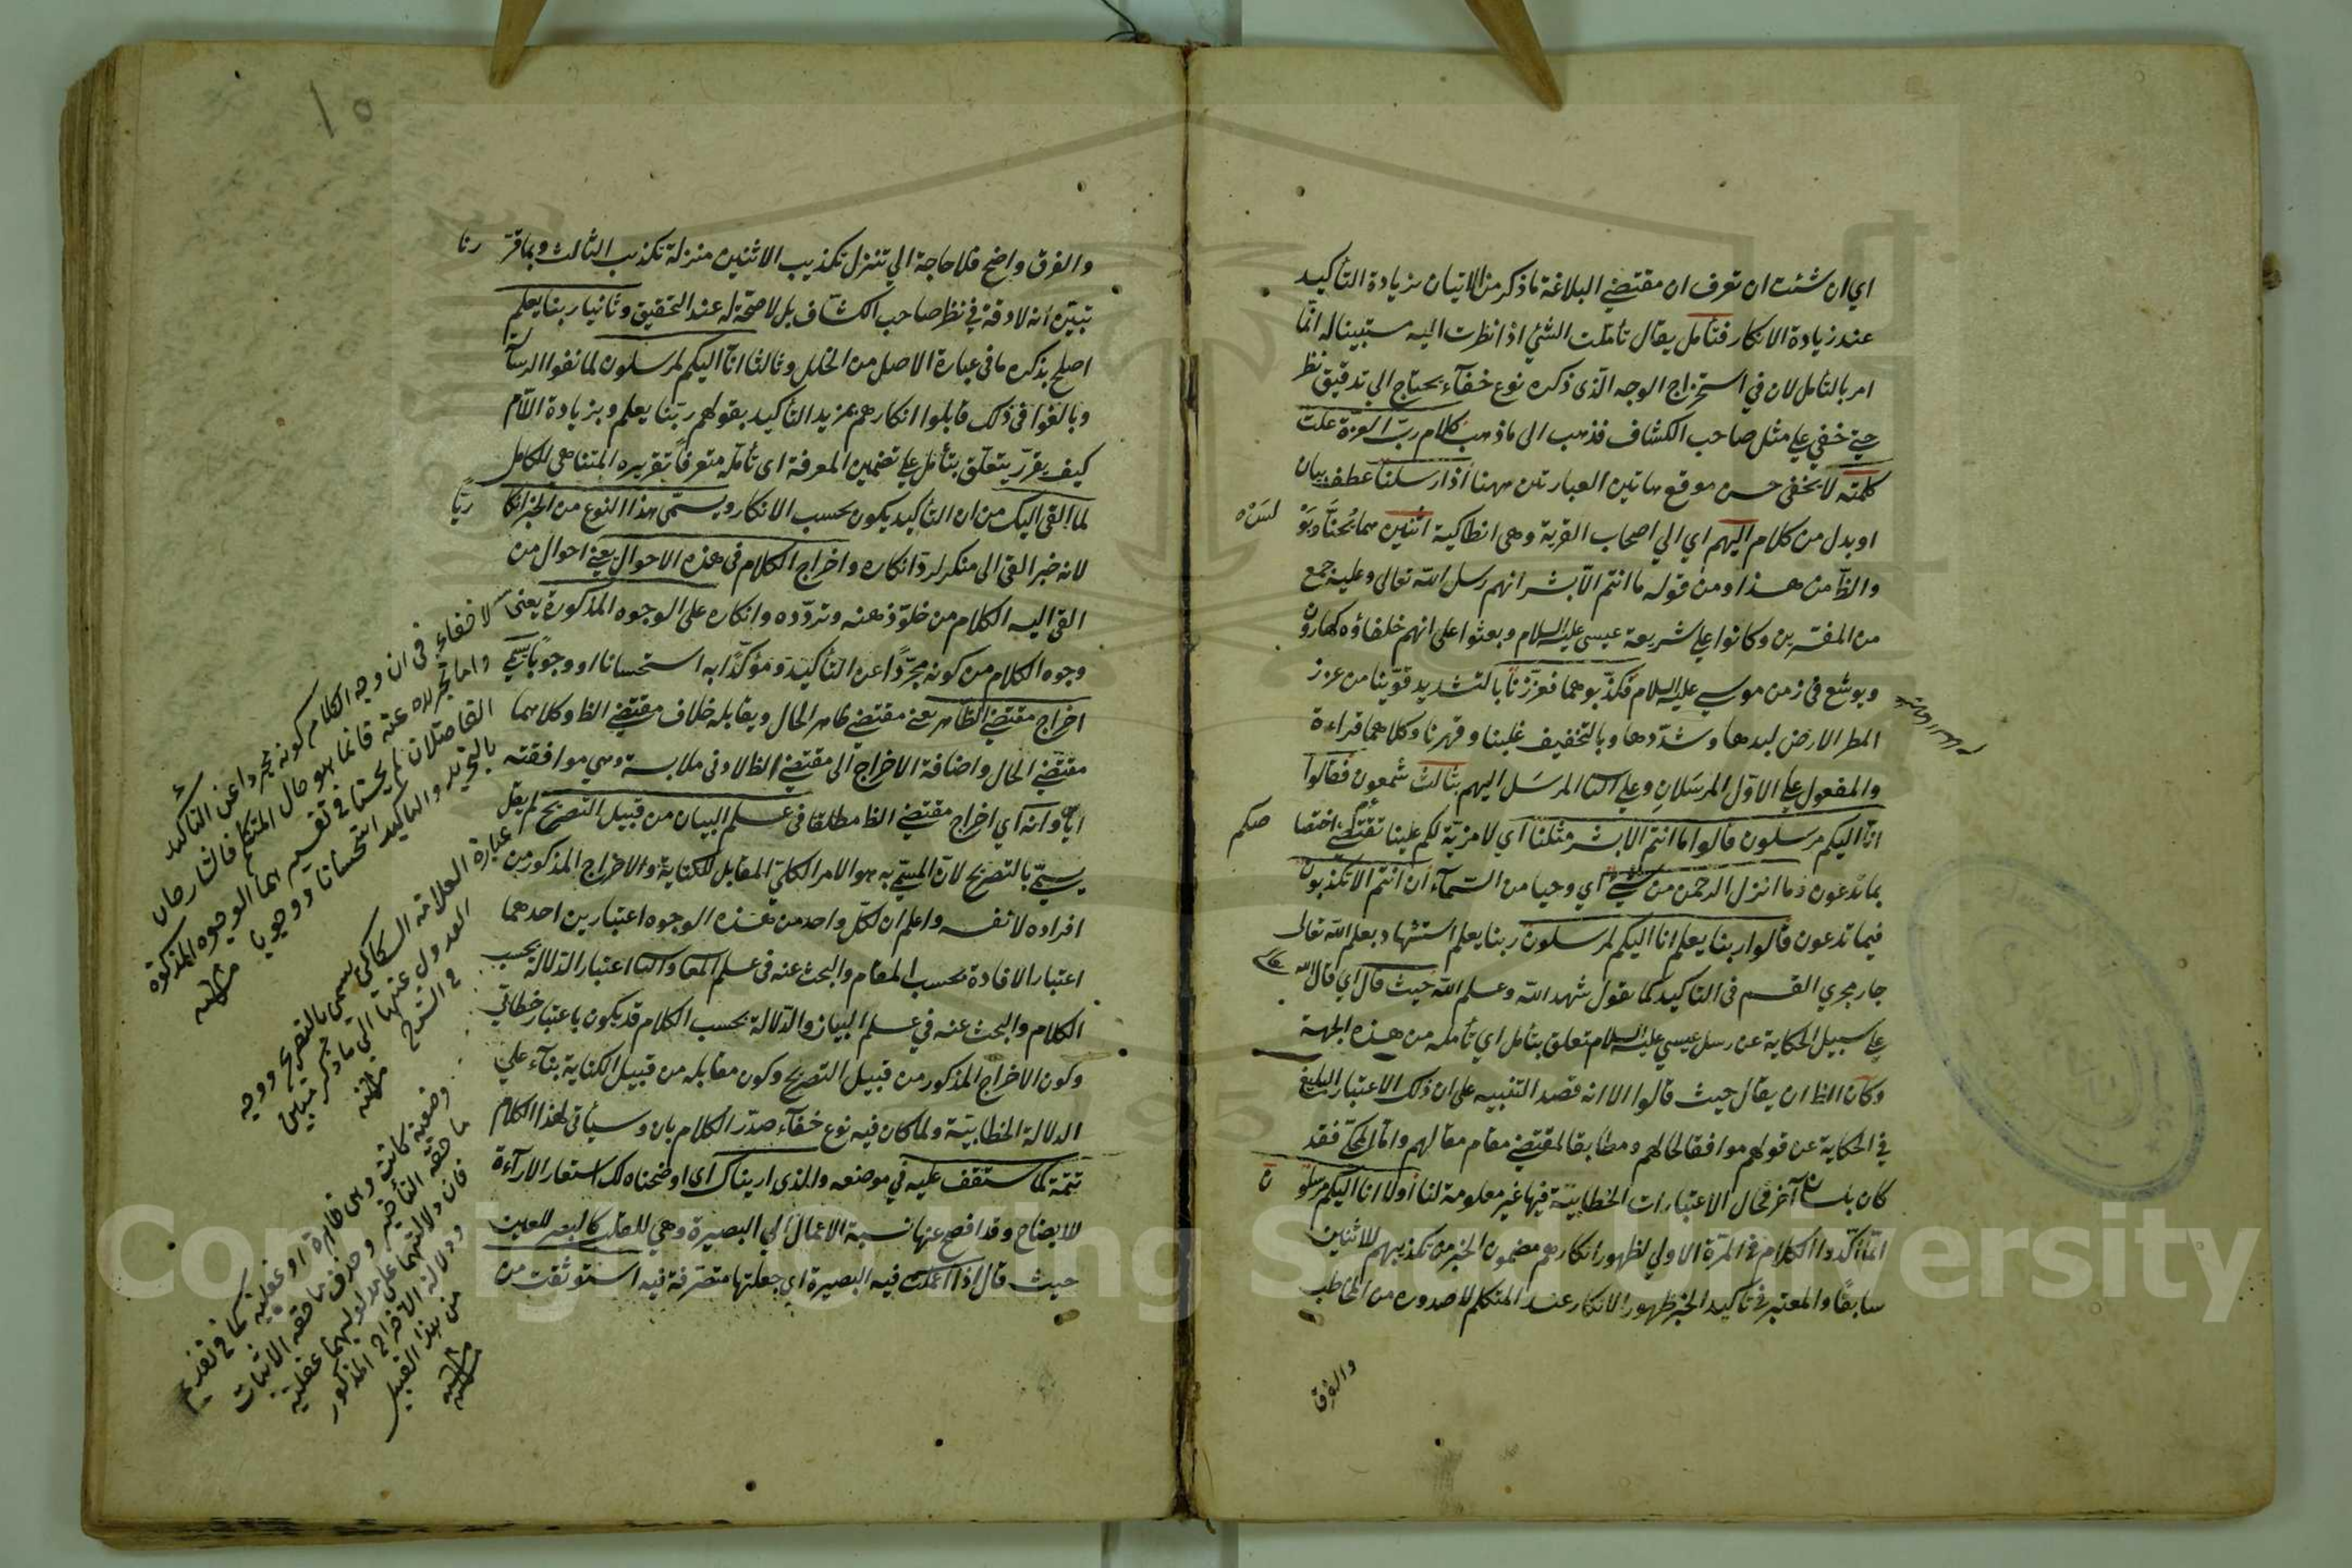 اي ان شئت ان تعرف ان مقتضي البلاغة ما ذكر من الاتيان بزيادة التأكيد
عند زيادة الانكار فتأمل يقال تأملت الشئ اذا نظرت اليه مستبينا له انما
امر بالتأمل لان في استخراج الوجه الذي ذكره نوع خفآء يحتاج الي تدقيق نظر
حتي خفي علي مثل صاحب الكشاف فذهب الى ما ذهب كلام رب العزة علت
كلمته لا يخفى حسن موقع هاتين العبارتين ههنا اذ ارسلنا عطف بيان
او بدل من كلام اليهم اي الي اصحاب القرية وهي انطاكية اثنين هما يحنا وبو
لس
والظ من هذا ومن قوله ما انتم الا بشر انهم رسل الله تعالى وعليه جمع
من المفسرين وكانوا علي شريعة عيسى عليه السلام وبعثوا على انهم خلفاؤه كهارون
ويوشع في زمن موسي عليه السلام فكذبوهما فعززنا بالتشديد قوينا من عزز
المطر الارض لبدها وشددها وبالتخفيف غلبنا وقهرنا وكلاهما قراءة
والمفعول علي الاول المرسلان وعلي الثا المرسل اليهم بثالث شمعون فقالوا
انا اليكم مرسلون قالوا ما انتم الا بشر مثلنا اي لا مزية لكم علينا تقتضي اختصا
صكم
بما تدعون وما انزل الرحمن من شئ اي وحيا من السمآء ان انتم الا تكذبون
فيما تدعون قالوا ربنا يعلم انا اليكم لمرسلون ربنا يعلم استشهاد بعلم الله تعالى
جار مجري القسم في التأكيد كما يقول شهد الله وعلم الله حيث قال اي قال الله
علي سبيل الحكاية عن رسل عيسي عليه السلام تعلق بتأمل اي تأمله من هذه الجهة
وكان الظ ان يقال حيث قالوا الا انه قصد التنبيه على ان ذلك الاعتبار البليغ
في الحكاية عن قولهم موافقا لحالهم ومطابقا لمقتضي مقام مقالهم واما المحكي فقد
كان بلسان آخر فحال الاعتبارات الخطابية فيها غير معلومة لنا اولا انا اليكم مرسلو
ن
انما اكدوا الكلام في المرة الاولي لظهور انكارهم مضمون الخبر من تكذيبهم للاثنين
سابقا والمعتبر في تأكيد الخبر ظهور الانكار عند المتكلم لا صدوره من المخاطب
والفرق
والفرق واضح فلا حاجة الي تنزل تكذيب الاثنين منزلة تكذيب الثالث وبما قر
رنا
تبين انه لا دقة في نظر صاحب الكشاف بل لا صحة له عند التحقيق وثانيا ربنا يعلم
اصلح بذكره ما في عبارة الاصل من الخلل وثالثا انا اليكم لمرسلون لما نفوا الرسآ
وبالغوا في ذلك قابلوا انكارهم بمزيد التأكيد بقولهم ربنا يعلم وبزيادة اللام
كيف يقرر يتعلق بتأمل علي تضمين المعرفة اى تأمله متعرفا تقريره المتناهي للكامل
لما القي اليك من ان التأكيد يكون بحسب الانكار ويسمى هذا النوع من الخبر انكا
ريا
لانه خبر القي الى منكر لرد انكاره واخراج الكلام في هذه الاحوال يعني احوال من
القي اليه الكلام من خلو ذهنه وتردده وانكاره على الوجوه المذكورة يعني
وجوه الكلام من كونه مجردا عن التأكيد ومؤكدا به استحسانا او وجوبا يسمي
اخراج مقتضي الظاهر يعني مقتضي ظاهر الحال ويقابله خلاف مقتضي الظ وكلاهما
مقتضي الحال واضافة الاخراج الى مقتضي الظ لادنى ملابسة وهي موافقته
اياه وانه اي اخراج مقتضي الظ مطلقا في علم البيان من قبيل التصريح لم يقل
يسمي بالتصريح لان المسمي به هو الامر الكلي المقابل للكناية والاخراج المذكور من
افراده لا نفسه واعلم ان لكل واحد من هذه الوجوه اعتبارين احدهما
اعتبار الافادة بحسب المقام والبحث عنه في علم المعا والثا اعتبار الدلالة بحسب
الكلام والبحث عنه في علم البيان والدلالة بحسب الكلام قد يكون باعتبار خطابي
وكون الاخراج المذكور من قبيل التصريح وكون مقابله من قبيل الكناية بناء علي
الدلالة الخطابية ولما كان فيه نوع خفآء صدر الكلام بان وسيأتي لهذا الكلام
تتمة كما ستقف عليه في موضعه والذى اريناك اى اوضحناه لك استعار الارآءة
للايضاح وقد افصح عنها نسبة الاعمال الي البصيرة وهي للقلب كالبصر للعين
حيث قال اذا اعملت فيه البصيرة اي جعلتها متصرفة فيه استوثقت من
لا خفاء في ان وجه الكلام كونه مجردا عن التأكيد
واما تجريده عنه فانما هو حال المتكلم فالشارحان
الفاضلان لم يحسنا في تفسيرهما الوجوه المذكورة
بالتجريد والتأكيد استحسانا ووجوبا منه
عبارة العلامة السكاكي يسمى بالتصريح ووجه
العدول عنها الي ما ذكر متبين
في الشرح منه
وضعية كانت وهي ظاهرة او عقلية كما في تقديم
ما حقه التأخير وحذف ما حقه الاثبات
فان دلالتهما على مدلوليهما عقلية
ودلالة الاخراج المذكور
من هذا القبيل
منه
Copyright © King Saud University